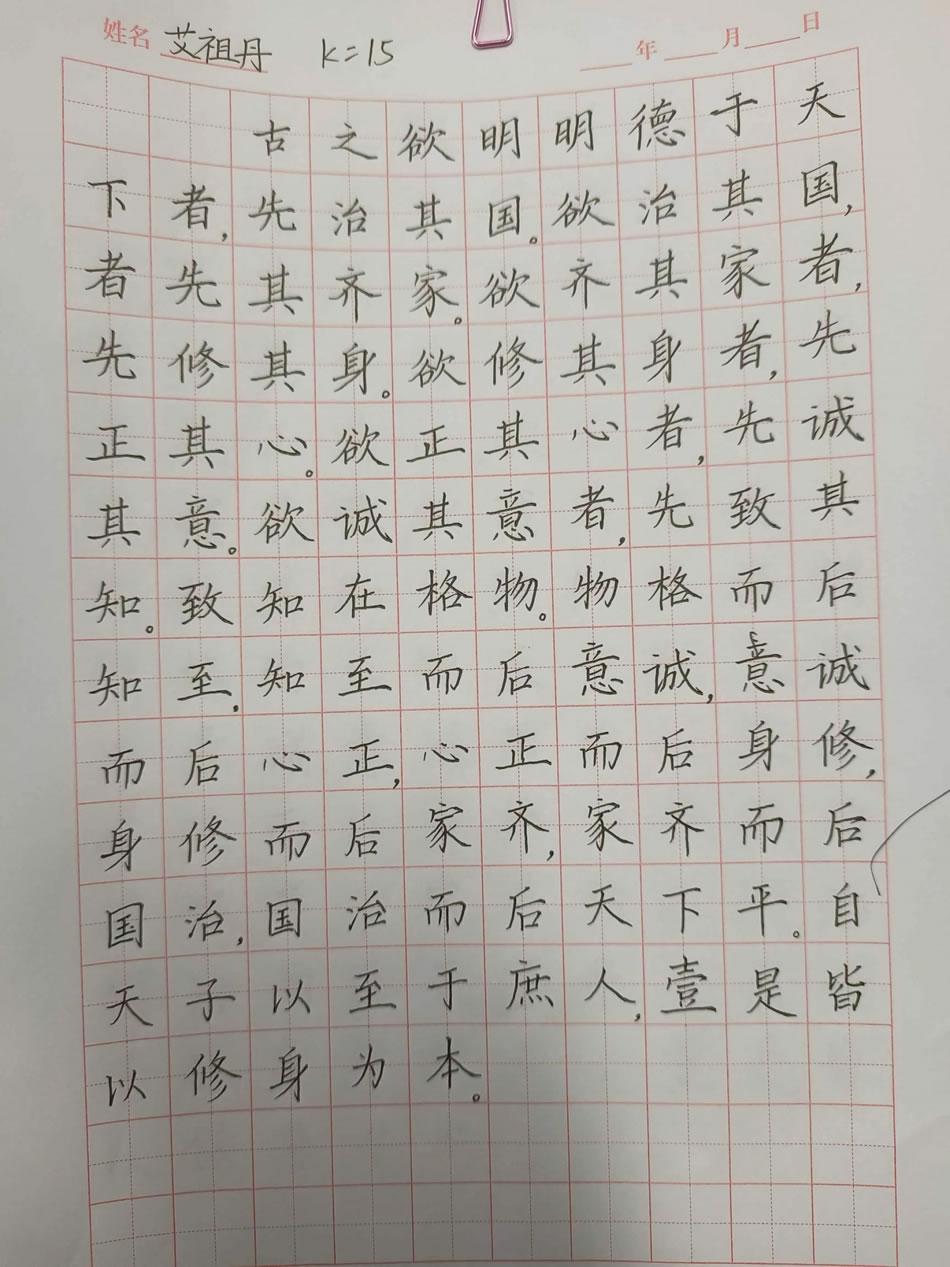 姓名 艾祖丹 K=15 年 月 日
古之欲明明德于天
下者,先治其国。欲治其国,
者先其齐家。欲齐其家者,
先修其身。欲修其身者,先
正其心。欲正其心者,先诚
其意。欲诚其意者,先致其
知。致知在格物。物格而后
知至,知至而后意诚,意诚
而后心正,心正而后身修,
身修而后家齐,家齐而后
国治,国治而后天下平。自
天子以至于庶人,壹是皆
以修身为本。